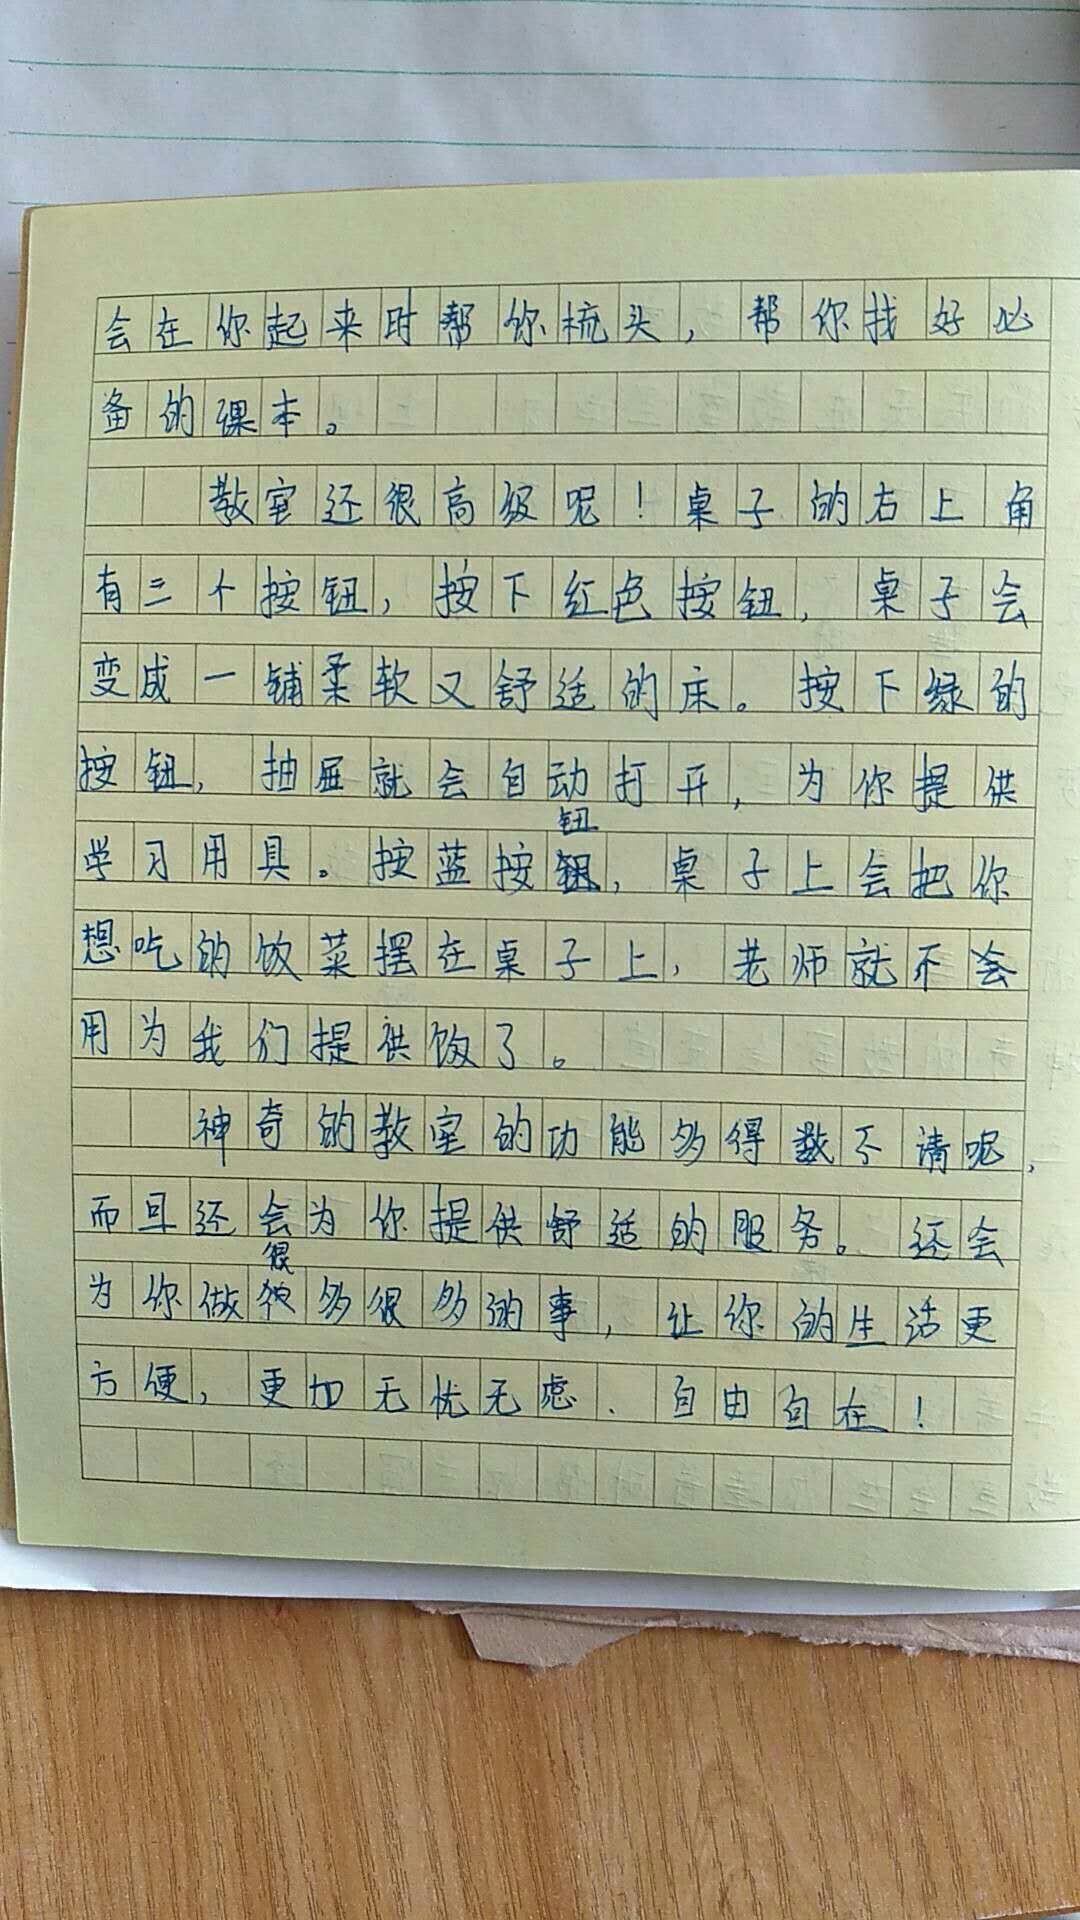 会在你起来时帮你梳头，帮你找好必
备的课本。
教室还很高级呢！桌子的右上角
有三个按钮，按下红色按钮，桌子会
变成一铺柔软又舒适的床。按下绿的
按钮，抽屉就会自动打开，为你提供
学习用具。按蓝按钮，桌子上会把你
想吃的饭菜摆在桌子上，老师就不会
用为我们提供饭了。
神奇的教室的功能多得数不请呢，
而且还会为你提供舒适的服务。还会
为你做很多很多的事，让你的生活更
方便，更加无忧无虑、自由自在！